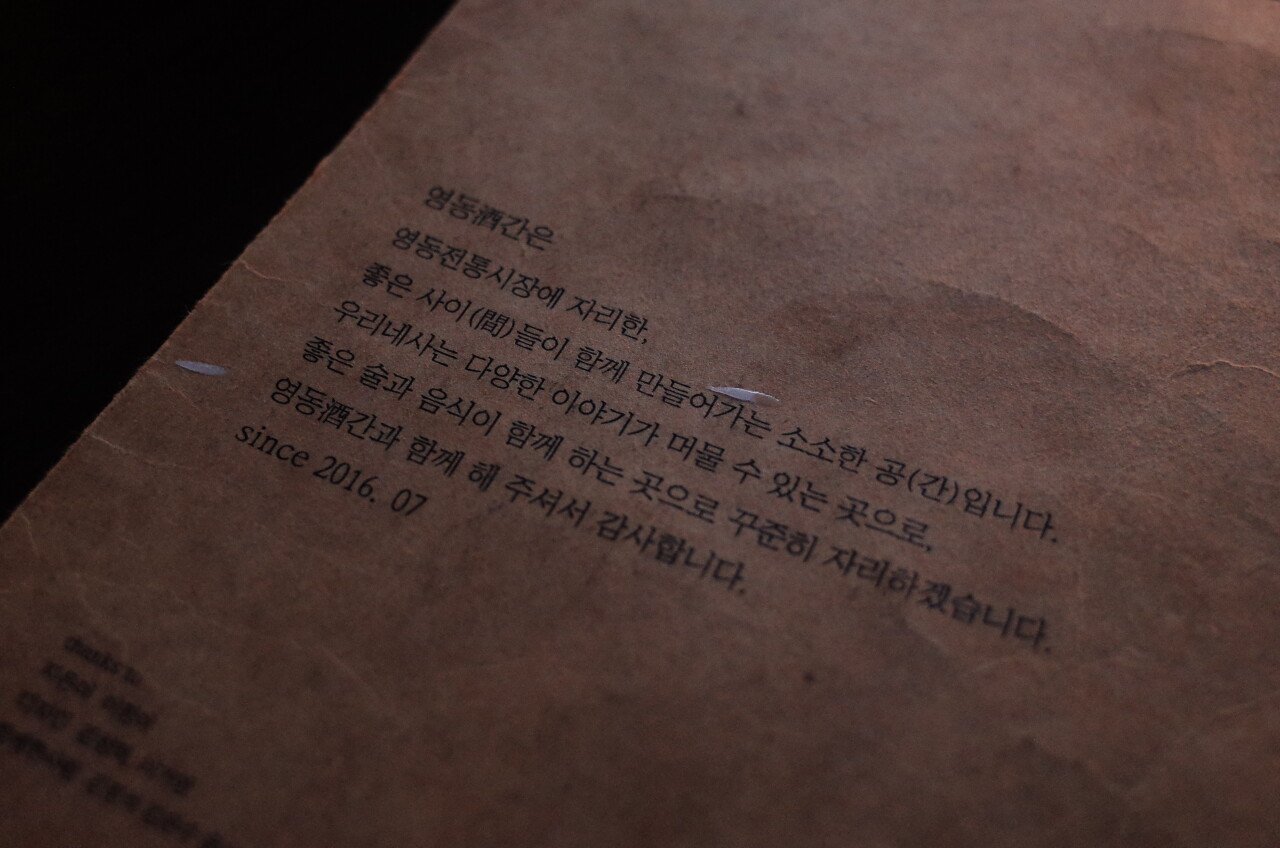 영동酒간은
영동전통시장에 자리한,
좋은 사이(間)들이 함께 만들어가는 소소한 공(간)입니다.
우리네사는 다양한 이야기가 머물 수 있는 곳으로,
좋은 술과 음식이 함께 하는 곳으로 꾸준히 자리하겠습니다.
영동酒간과 함께 해 주셔서 감사합니다.
since 2016. 07
thanks to.